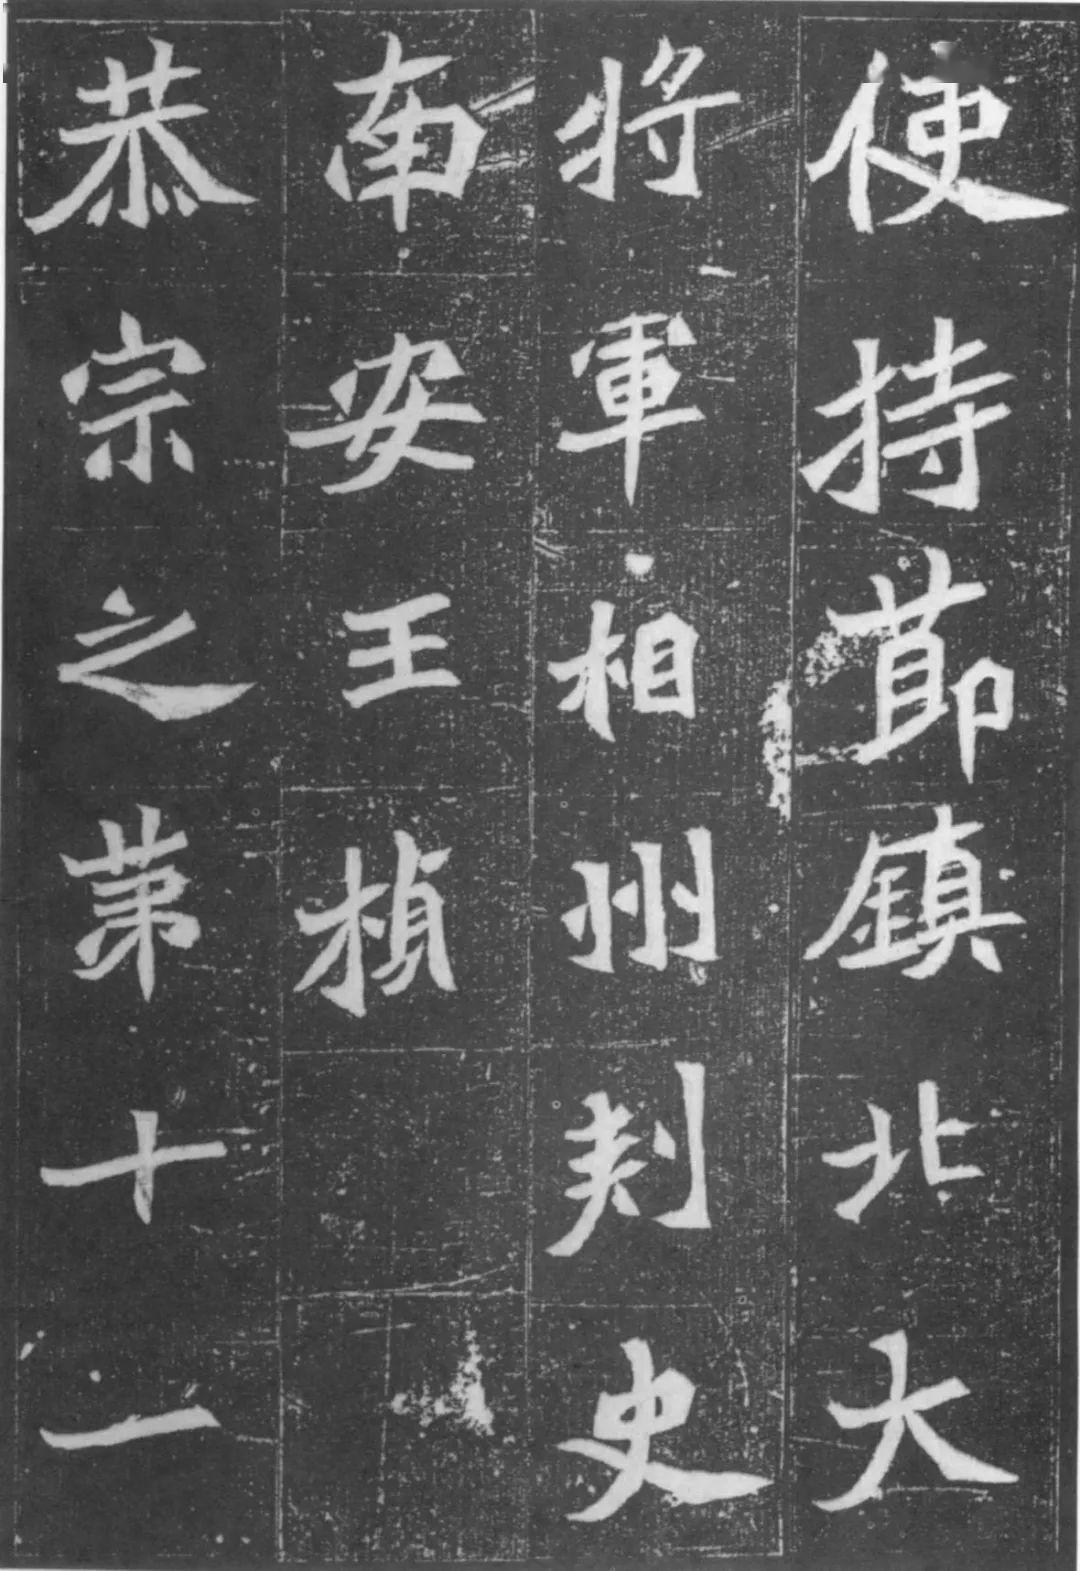 使持節鎮北大
將軍相州刾史
南安王楨
恭宗之第十一